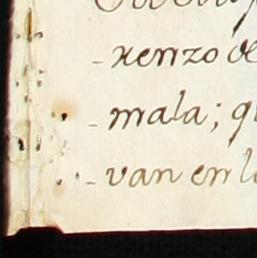 -renzo de
-mala; qu
-van en la